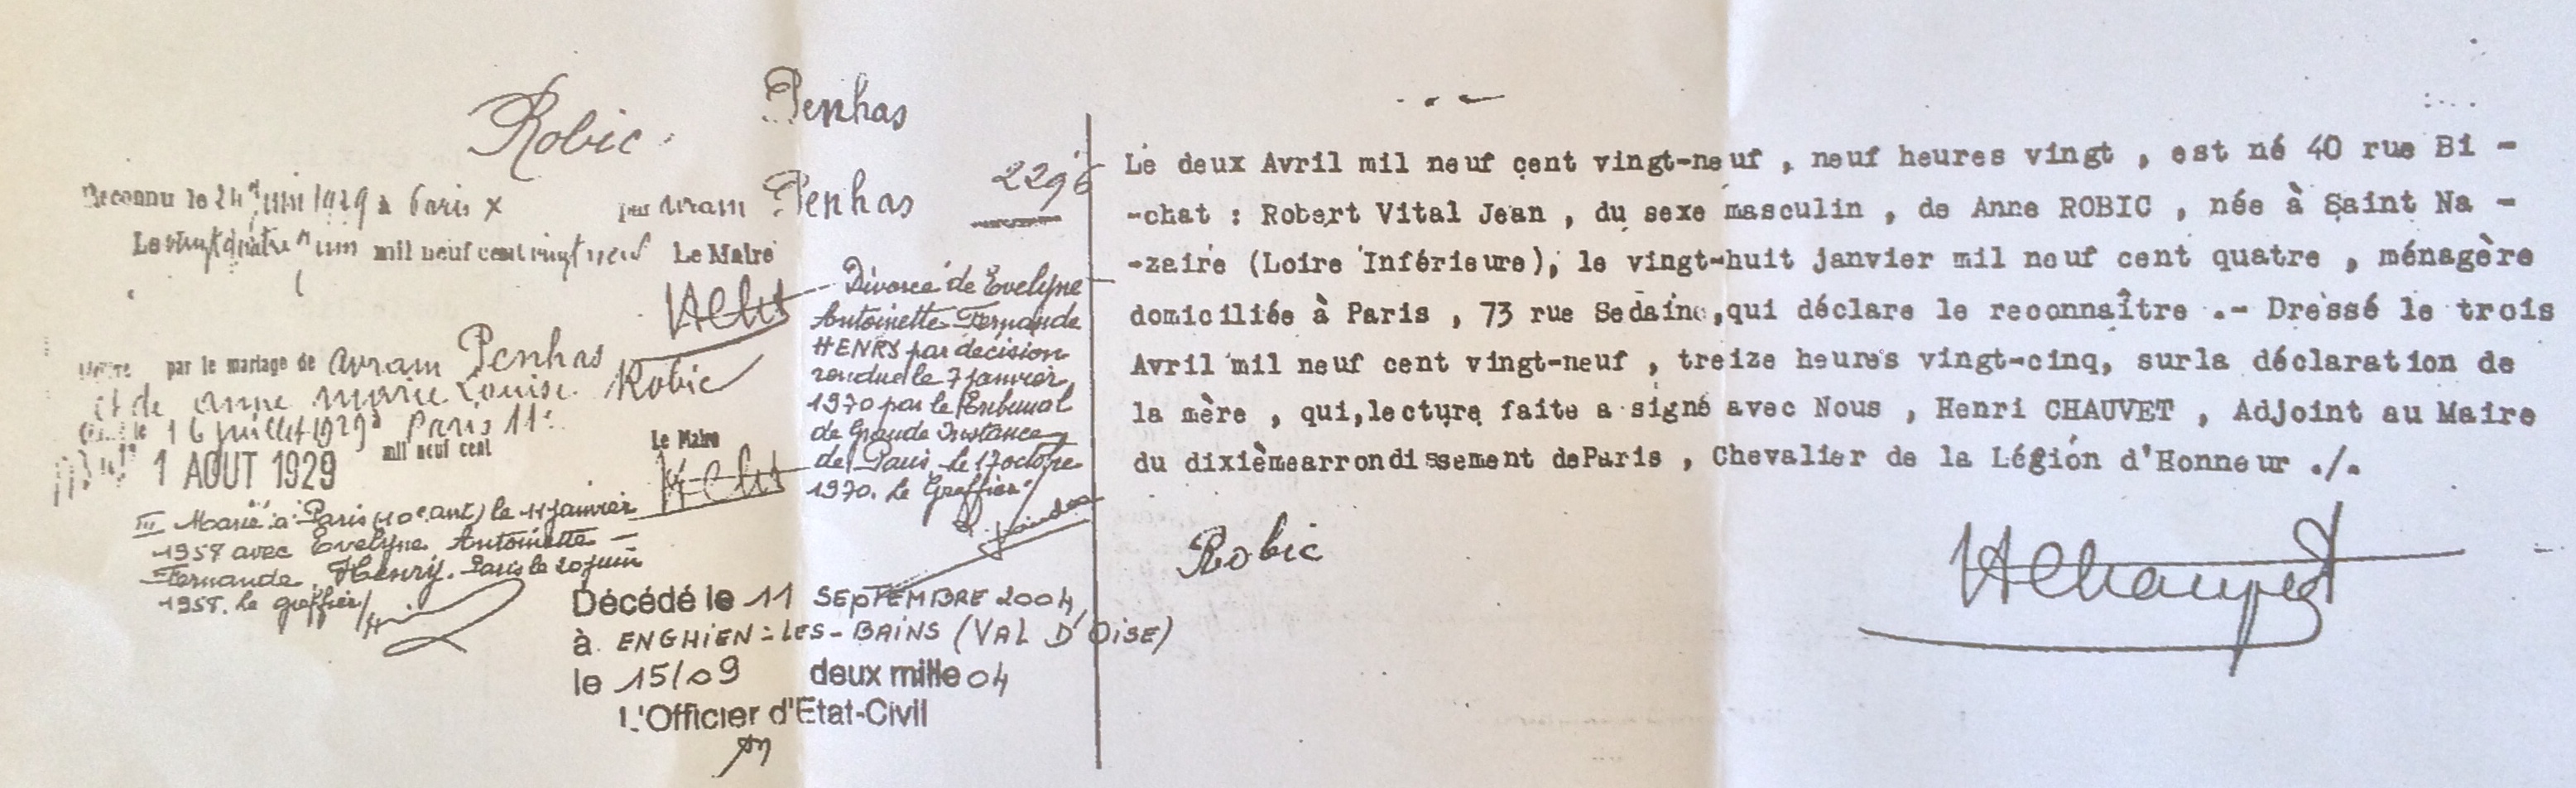 Robic
Penhas
Reconnu le 24 Juin 1929 à Paris X par Avram Penhas
Le vingt quatre Juin mil neuf cent vingt neuf Le Maire
2296
par le mariage de Avram Penhas
et de Anne Marie Louise Robic
le 16 juillet 1929 à Paris 11e
mil neuf cent
1 AOUT 1929
Le Maire
III Marié à Paris (10e arrt) le 11 janvier
1958 avec Evelyne Antoinette
Fernande Henry. Paris le 20 juin
1958. Le greffier
Divorcé de Evelyne
Antoinette Fernande
HENRY par décision
rendue le 7 janvier
1970 par le Tribunal
de Grande Instance
de Paris, le 17 octobre
1970. Le Greffier
Décédé le 11 SEPTEMBRE 2004
à ENGHIEN-LES-BAINS (VAL D'OISE)
le 15/09 deux mille 04
L'Officier d'Etat-Civil
Le deux Avril mil neuf cent vingt-neuf , neuf heures vingt , est né 40 rue Bi -
-chat : Robert Vital Jean , du sexe masculin , de Anne ROBIC , née à Saint Na -
-zaire (Loire Inférieure), le vingt-huit janvier mil neuf cent quatre , ménagère
domiciliée à Paris , 73 rue Sedaine,qui déclare le reconnaître .- Dressé le trois
Avril mil neuf cent vingt-neuf , treize heures vingt-cinq, surla déclaration de
la mère , qui,lecture faite a signé avec Nous , Henri CHAUVET , Adjoint au Maire
du dixièmearrondissement deParis , Chevalier de la Légion d'Honneur ./.
Robic
HChauvet